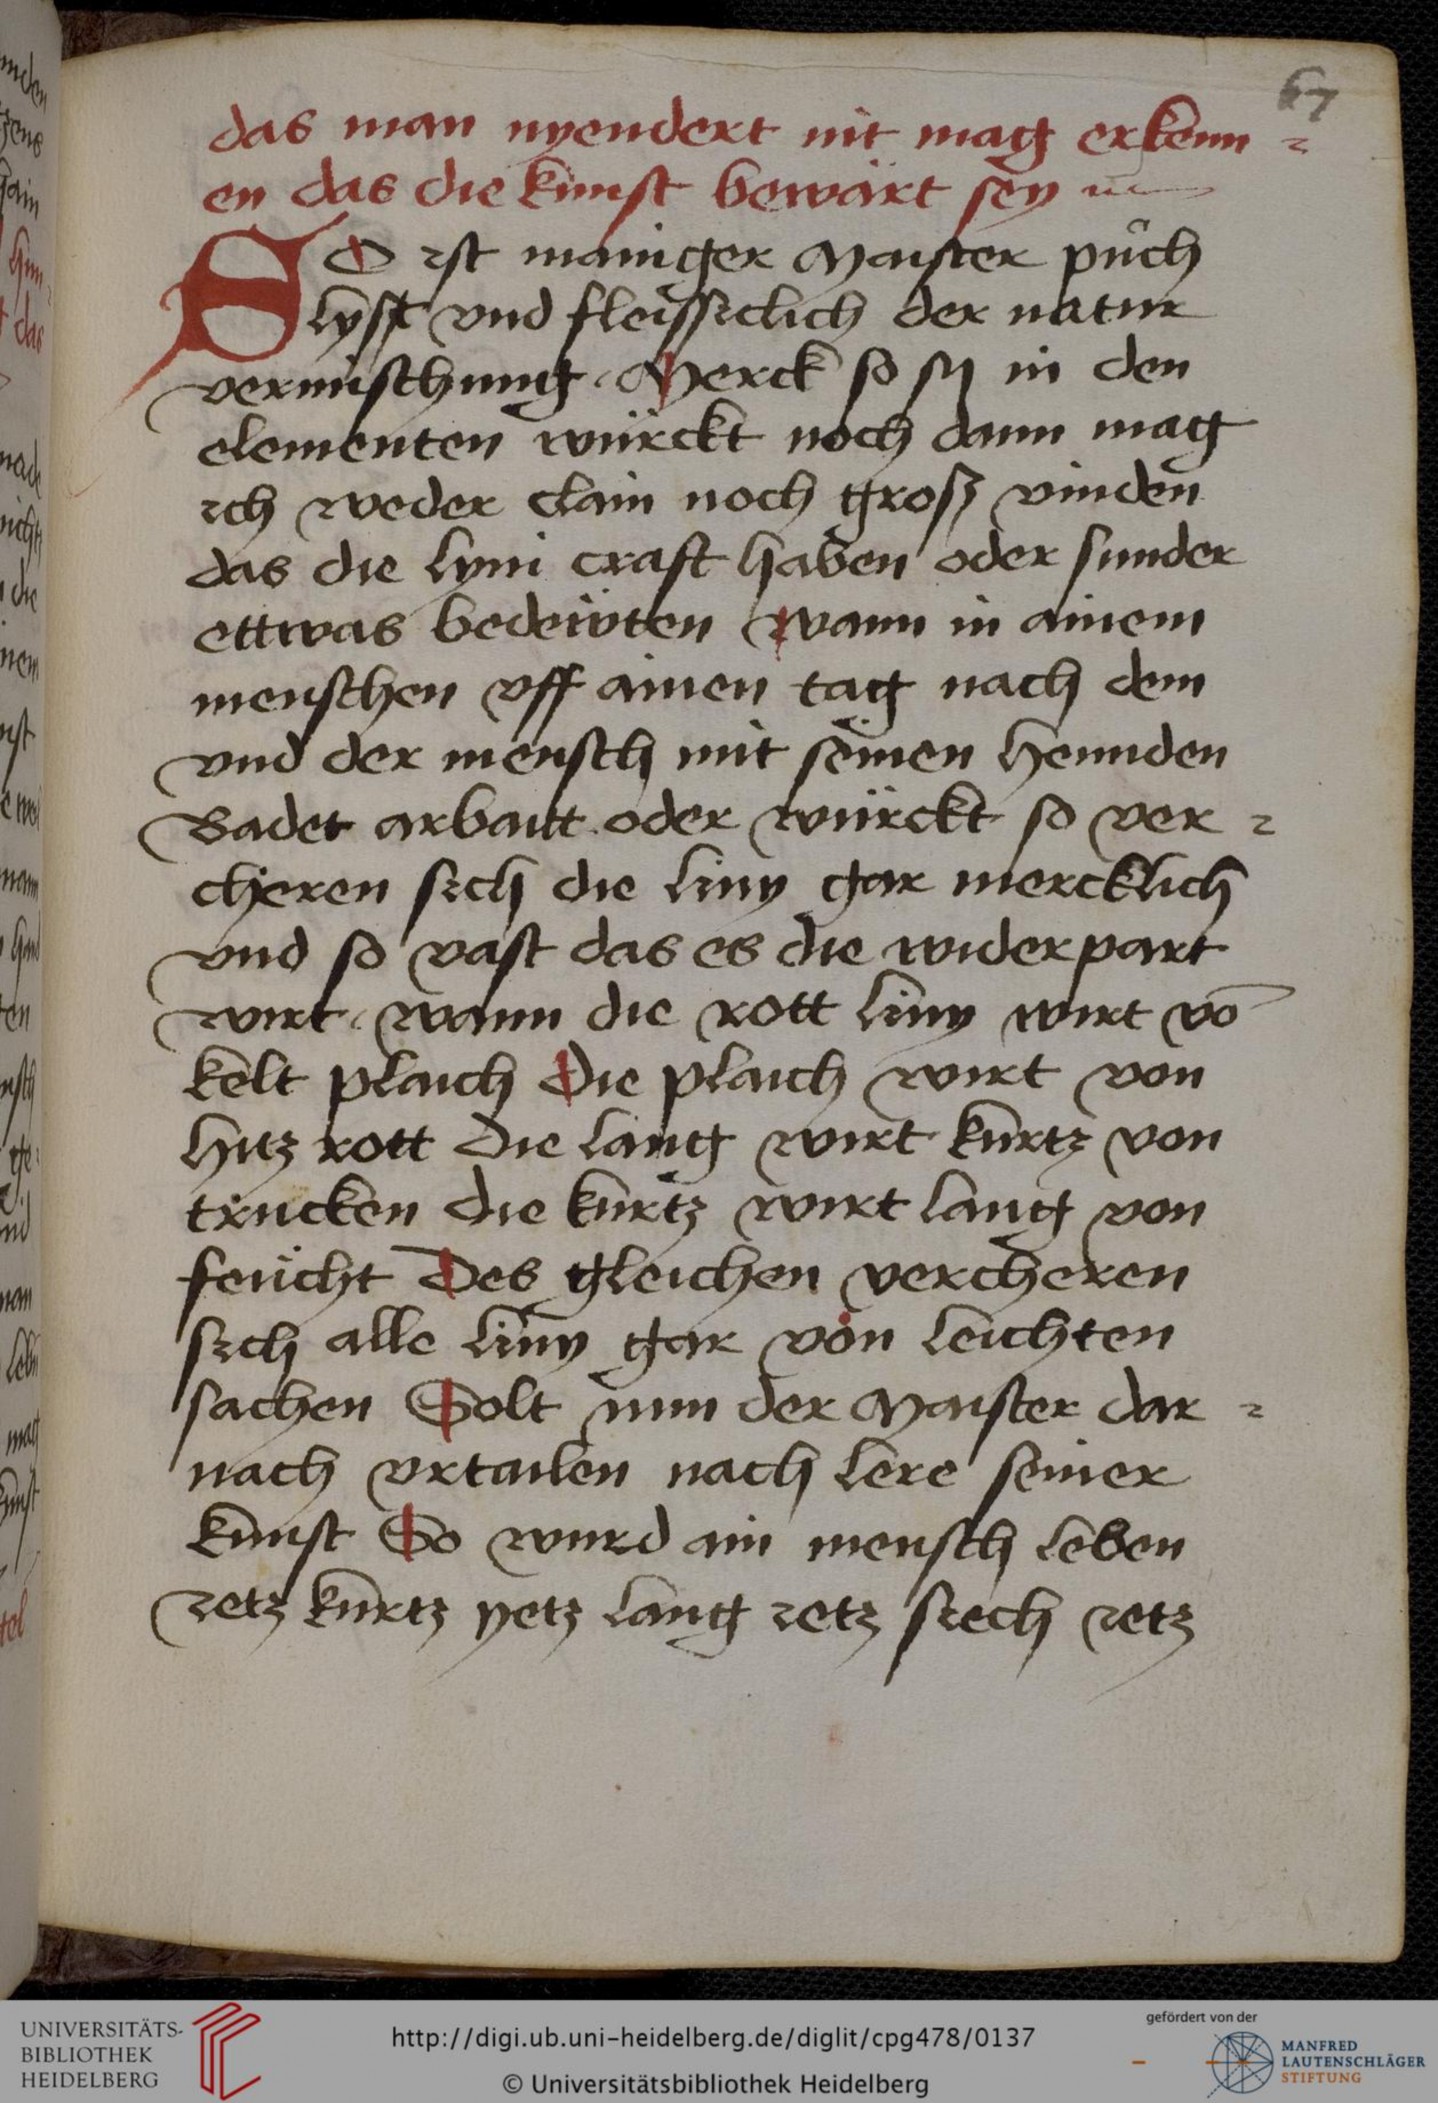 67
das man nyendert nit mag erkenn =
en das die kunst bewärt sey
SO ist mainiger Maister půch
lyst vnd fleissiclich der natur
vermischung. Merck so sy in den
elementen würckt noch dann mag
ich weder clain noch groß vinden
das die lyni craft haben oder sunder
ettwas bedeẅten wann in ainem
menschen vff ainen tag nach dem
vnd der mensch mit seinen hennden
Badet arbaitt oder würckt so ver =
cheren sich die liny gar mercklich
vnd so vast das es die widerpart
wirt. wann die rott liny wirt vō
kelt plaich Die plaich wirt von
hitz rott Die lang wirt kurtz von
trucken die kurtz wirt lang von
feücht Des gleichen vercheren
sich alle liny gar von leichten
sachen Solt nun der Maister dar =
nach vrtailen nach lere seiner
kunst So wurd ain mensch leben
ietz kurtz yetz lang ietz siech ietz
UNIVERSITÄTS-
BIBLIOTHEK
HEIDELBERG
http://digi.ub.uni-heidelberg.de/diglit/cpg478/0137
© Universitätsbibliothek Heidelberg
gefördert von der
MANFRED
LAUTENSCHLÄGER
STIFTUNG